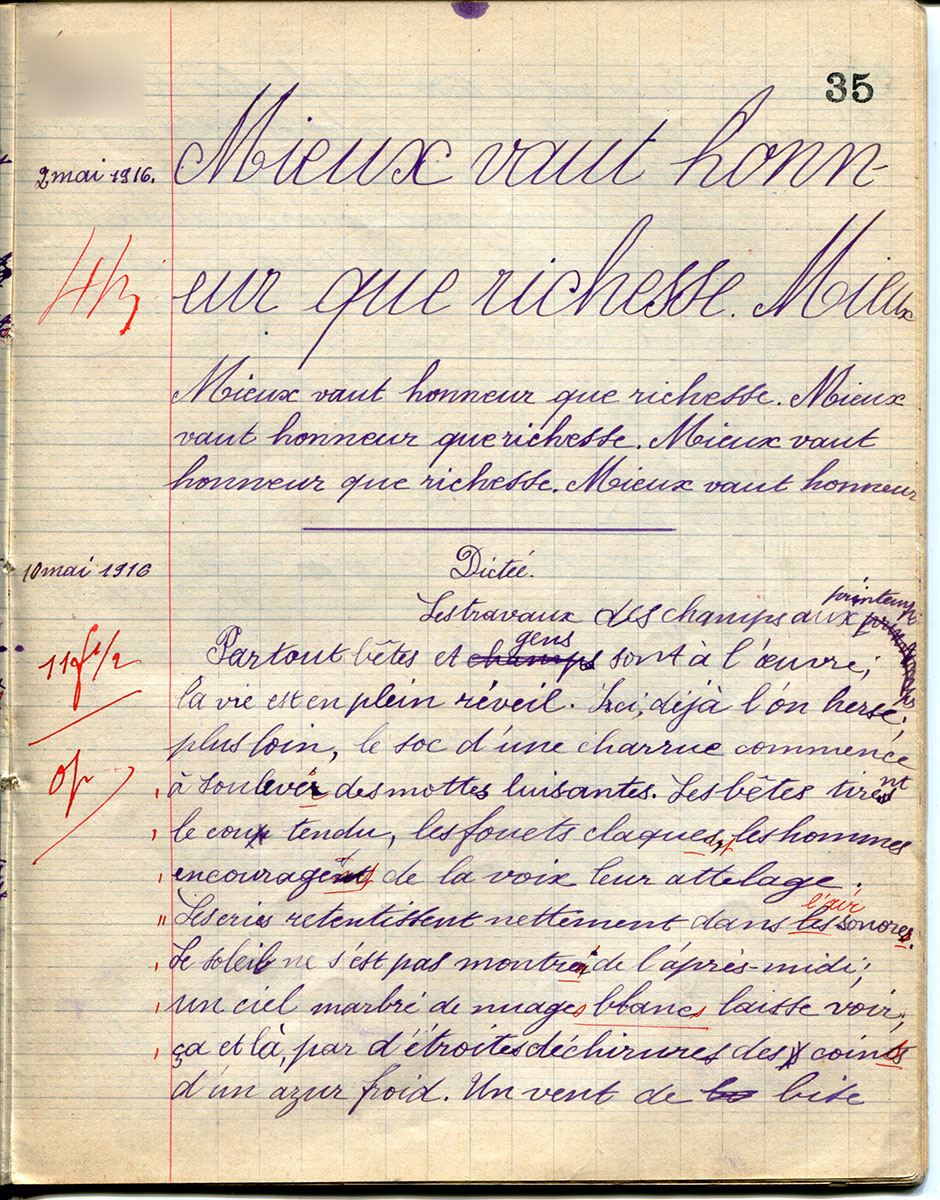 35
2 mai 1916.
Mieux vaut honn-
eur que richesse. Mieux
Mieux vaut honneur que richesse. Mieux
vaut honneur que richesse. Mieux vaut
honneur que richesse. Mieux vaut honneur
10 mai 1916
Dictée.
printemps
Les travaux des champs aux
gens
Partout bêtes et champs sont à l'œuvre;
11 f 1/2
la vie est en plein réveil. Ici, déjà l'on herse;
plus loin, le soc d'une charrue commence
0f
à soulever des mottes luisantes. Les bêtes tirent
le cou tendu, les fouets claques, les hommes
encouragent de la voix leur attelage.
l'air
Les cries retentissent nettement dans les sonores.
Le soleil ne s'est pas montré de l'après-midi;
un ciel marbré de nuages blancs laisse voir,
ça et là, par d'étroites déchirures des coins
d'un azur froid. Un vent de bise